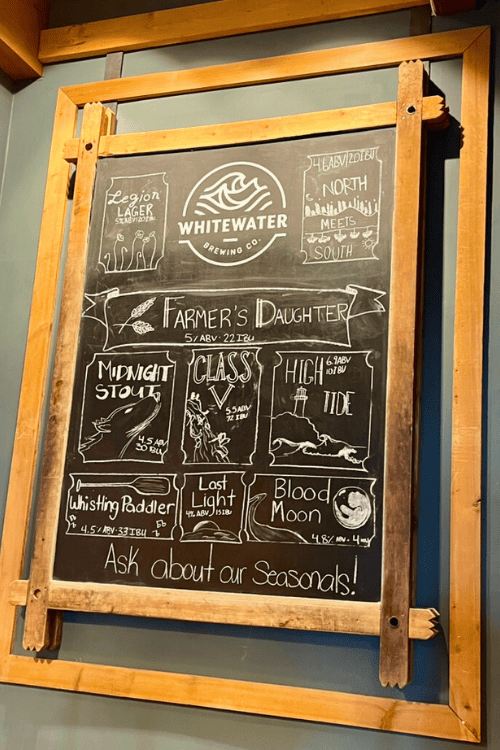 Legion
LAGER
5%ABV/20IBU
WHITEWATER
BREWING CO.
4.6ABV/20IBU
NORTH
MEETS
SOUTH
FARMER'S DAUGHTER
5%ABV·22IBU
MIDNIGHT
STOUT
4.5 ABV
30 IBU
CLASS
V
5.5 ABV
72 IBU
HIGH
TIDE
10IBU
Whistling Paddler
4.5% ABV·33IBU
Last
Light
4% ABV 15IBU
Blood
Moon
4.8% ABV
Ask about our Seasonals!